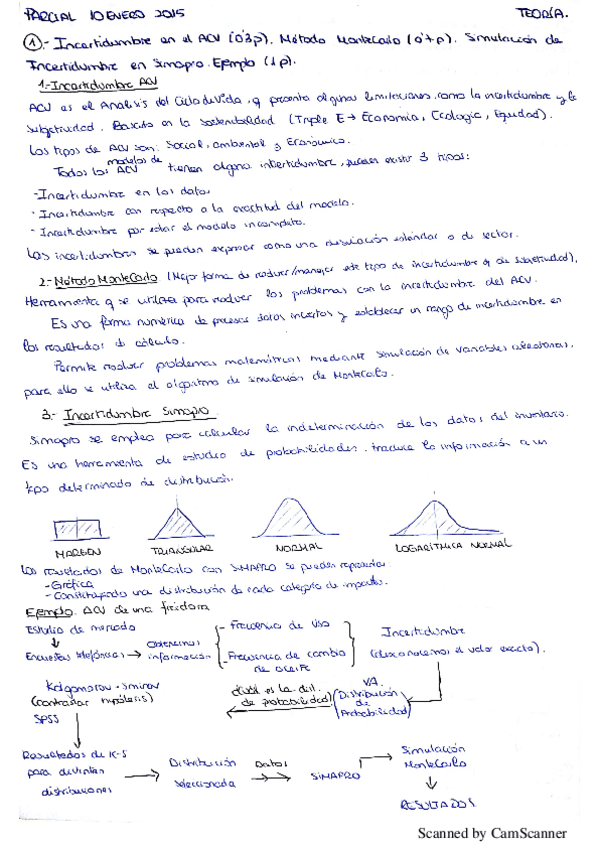 PARCIAL 10 ENERO 2015 TEORÍA.
①.- Incertidumbre en el ACV (0'3p). Método MonteCarlo (0'7p). Simulación de
Incertidumbre en Simapro. Ejemplo (1p).
1.- Incertidumbre ACV
ACV es el Análisis del Ciclo de Vida, q presenta algunas limitaciones como la incertidumbre y la
subjetividad. Basado en la sostenibilidad (Triple E → Economía, Ecología, Equidad).
Los tipos de ACV son: Social, ambiental y Económico.
Todos los modelos de ACV tienen alguna incertidumbre, pueden existir 3 tipos:
- Incertidumbre en los datos.
- Incertidumbre con respecto a la exactitud del modelo.
- Incertidumbre por estar el modelo incompleto.
Las incertidumbres se pueden expresar como una desviación estándar o de sector.
2.- Método MonteCarlo (Mejor forma de resolver/manejar este tipo de incertidumbre y de subjetividad).
Herramienta q se utiliza para resolver los problemas con la incertidumbre del ACV.
Es una forma numérica de procesar datos inciertos y establecer un rango de incertidumbre en
los resultados de cálculo.
Permite resolver problemas matemáticos mediante simulación de variables aleatorias.
para ello se utiliza el algoritmo de simulación de MonteCarlo.
3.- Incertidumbre Simapro
Simapro se emplea para calcular la indeterminación de los datos del inventario.
Es una herramienta de estudio de probabilidades. traduce la información a un
tipo determinado de distribución.
MARGEN TRIANGULAR NORMAL LOGARÍTMICA NORMAL
Los resultados de MonteCarlo con SIMAPRO se pueden representar:
- Gráfica
- Construyendo una distribución de cada categoría de impacto.
Ejemplo: ACV de una freidora
Estudio de mercado
↓
Encuestas telefónicas → Obtenemos información
- Frecuencia de uso
- Frecuencia de cambio de aceite
Incertidumbre
(desconocemos el valor exacto).
V.A.
(Distribución de Probabilidad)
¿Cuál es la dist. de probabilidad?
Kolgomorov-Smirnov
(contrastar hipótesis)
SPSS
Resultados de K-S
para distintas
distribuciones
→ Distribución seleccionada
Datos → SIMAPRO
Simulación
MonteCarlo
↓
RESULTADOS
Scanned by CamScanner